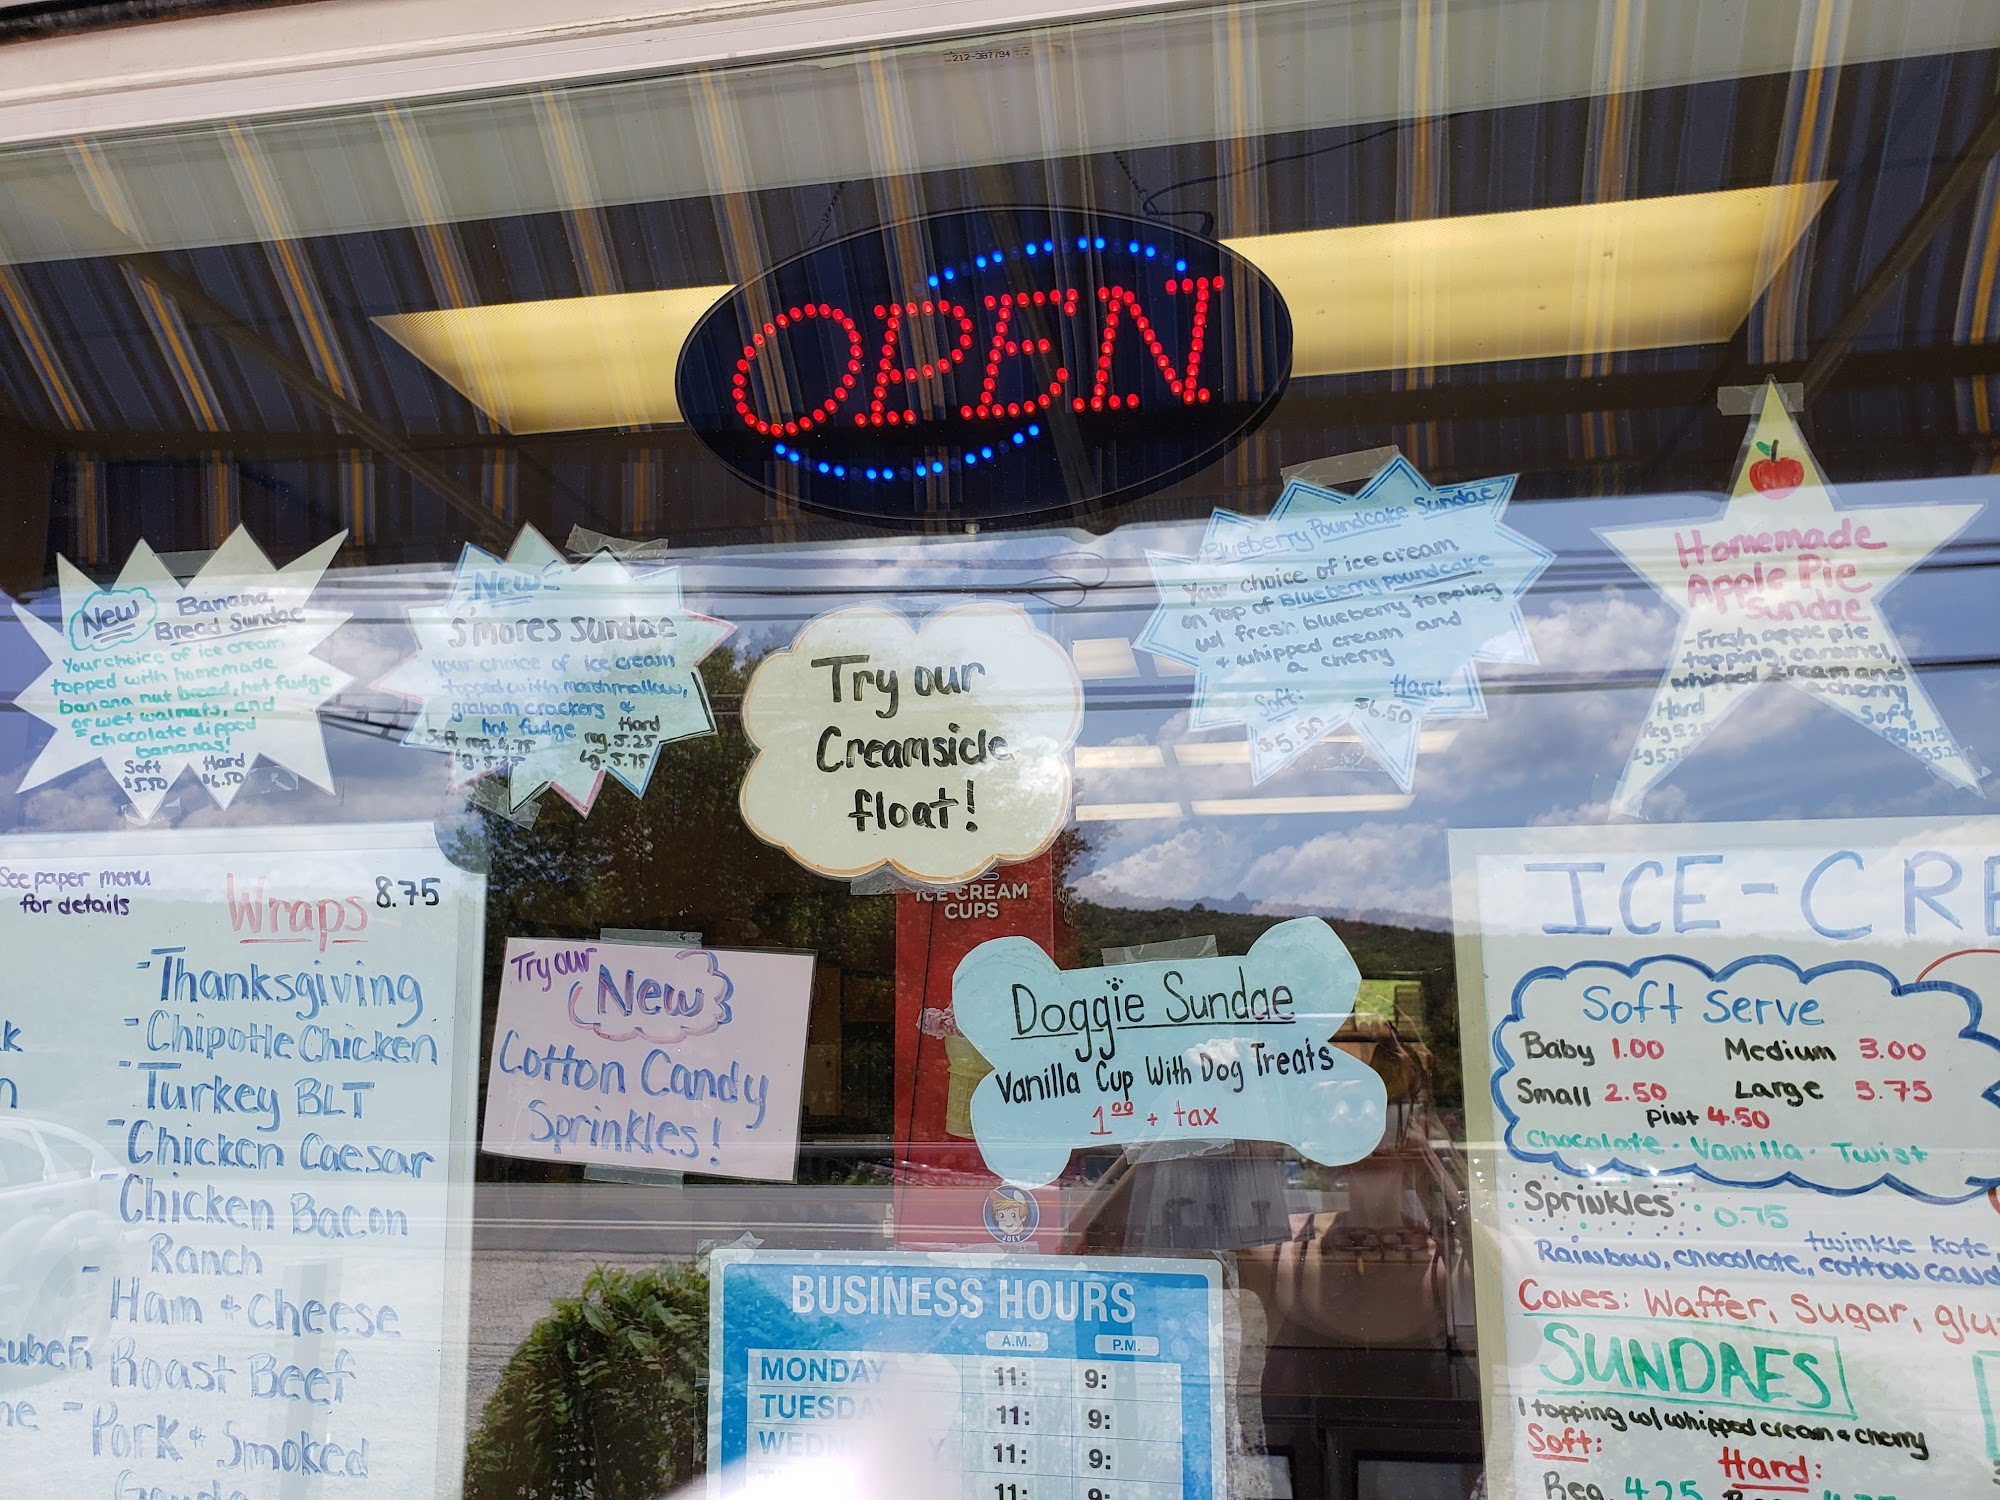 212-387794
OPEN
New
Banana
Bread Sundae
Your choice of ice cream
topped with homemade
banana nut bread, hot fudge
or wet walnuts, and
chocolate dipped
bananas!
Soft Hard
$5.50 $6.50
-New-
S'mores Sundae
your choice of ice cream
topped with marshmallow,
graham crackers &
hot fudge
Soft Hard
reg. 4.75 reg. 5.25
lg. lg. 5.75
Try our
Creamsicle
float!
Blueberry Poundcake Sundae
Your choice of ice cream
on top of Blueberry poundcake
w/ fresh blueberry topping
+ whipped cream and
a cherry
Soft: Hard:
$5.50 $6.50
Homemade
Apple Pie
Sundae
-Fresh apple pie
topping, caramel,
whipped cream and
a cherry
Hard Soft
Reg 5.25 reg 4.75
Lg 5.75 5.25
See paper menu
for details
Wraps 8.75
-Thanksgiving
-Chipotle Chicken
-Turkey BLT
-Chicken Caesar
-Chicken Bacon
Ranch
-Ham & Cheese
Roast Beef
-Pork & Smoked
Gouda
ICE CREAM
CUPS
Try our
New
Cotton Candy
Sprinkles!
Doggie Sundae
Vanilla Cup With Dog Treats
1.00 + tax
JOEY
BUSINESS HOURS
A.M. P.M.
MONDAY 11: 9:
TUESDA 11: 9:
WEDN Y 11: 9:
11: 9:
ICE-CRE
Soft Serve
Baby 1.00 Medium 3.00
Small 2.50 Large 3.75
Pint 4.50
Chocolate · Vanilla · Twist
Sprinkles 0.75
twinkle kote,
Rainbow, chocolate, cotton cand
Cones: Waffer, Sugar, glu
SUNDAES
1 topping w/ whipped cream & cherry
Soft: Hard:
Reg. 4.25